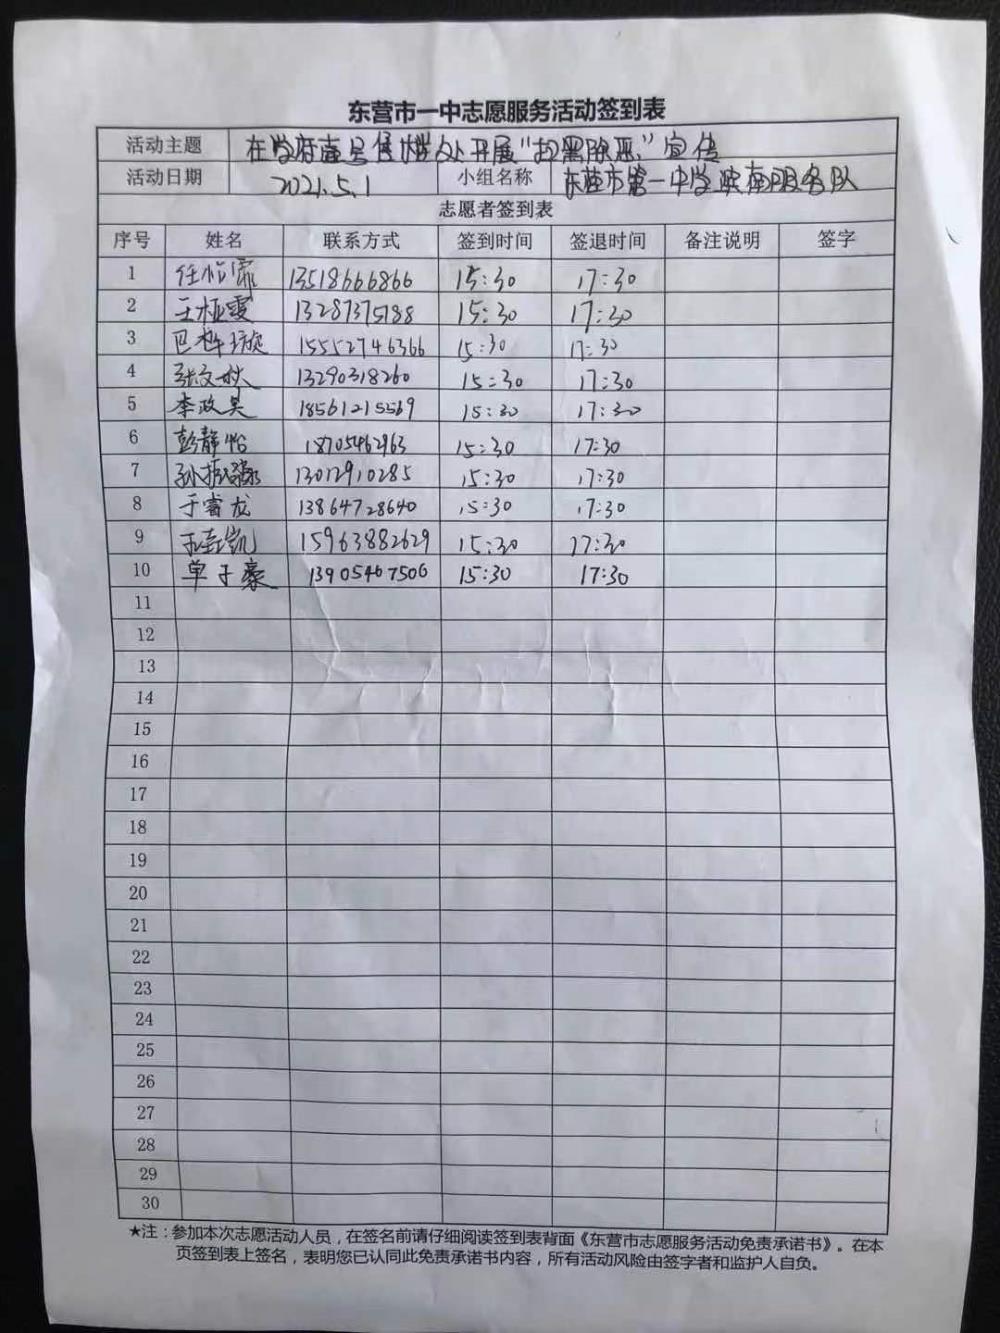 东营市一中志愿服务活动签到表
活动主题 在学府壹号售楼处开展“扫黑除恶”宣传
活动日期 2021.5.1 小组名称 东营市第一中学滨南服务队
志愿者签到表
序号 姓名 联系方式 签到时间 签退时间 备注说明 签字
1 任怡霏 13518666866 15:30 17:30
2 王极雯 13287375188 15:30 17:30
3 巴梓璇 15552746366 15:30 17:30
4 张文 13290318260 15:30 17:30
5 李政昊 18561215569 15:30 17:30
6 彭静怡 18705462963 15:30 17:30
7 孙 13012910285 15:30 17:30
8 于睿龙 13864728640 15:30 17:30
9 凯 15963882629 15:30 17:30
10 单子豪 13905467506 15:30 17:30
11
12
13
14
15
16
17
18
19
20
21
22
23
24
25
26
27
28
29
30
★注：参加本次志愿活动人员，在签名前请仔细阅读签到表背面《东营市志愿服务活动免责承诺书》。在本
页签到表上签名，表明您已认同此免责承诺书内容，所有活动风险由签字者和监护人自负。